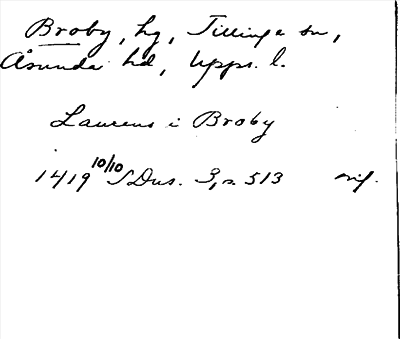 Broby, hg, Tillinge sn,
Åsunda hd, Upps. l.
Laurens i Broby
1419 10/10 SDns. 3, s. 513 orig.